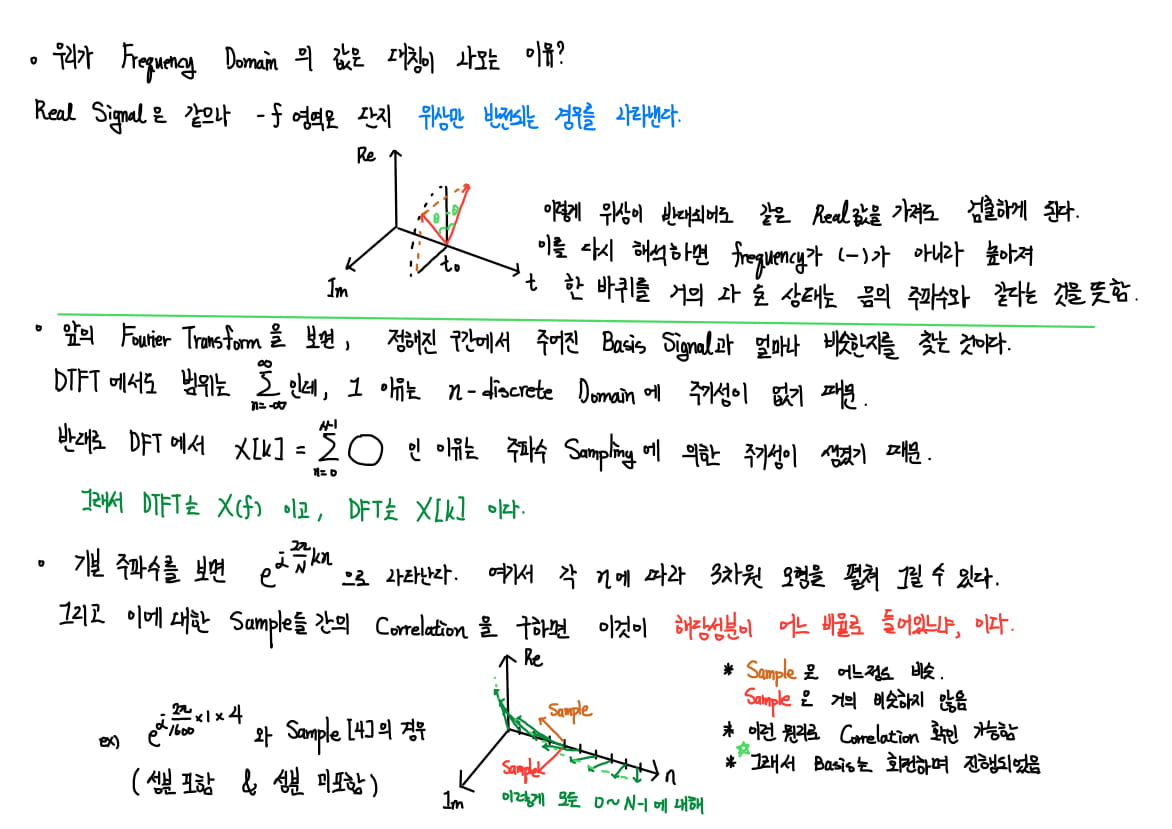 ◦ 우리가 Frequency Domain 의 값은 대칭이 나오는 이유?
Real Signal은 같으나 -f 영역은 단지 위상만 반전되는 경우를 나타낸다.
Re
θ θ
t₀
t
Im
이렇게 위상이 반대되어도 같은 Real값을 가져도 검출하게 된다.
이를 다시 해석하면 frequency가 (-)가 아니라 높아져
한 바퀴를 거의 다 돈 상태는 음의 주파수와 같다는 것을 뜻함.
◦ 앞의 Fourier Transform을 보면, 정해진 구간에서 주어진 Basis Signal과 얼마나 비슷한지를 찾는 것이다.
DTFT 에서도 범위는 ∑_{n=-∞}^{∞} 인데, 그 이유는 n-discrete Domain에 주기성이 없기 때문.
반대로 DFT에서 X[k] = ∑_{n=0}^{N-1} ◯ 인 이유는 주파수 Sampling에 의한 주기성이 생겼기 때문.
그래서 DTFT는 X(f) 이고, DFT는 X[k] 이다.
◦ 기본 주파수를 보면 e^{j\frac{2π}{N}kn} 으로 나타난다. 여기서 각 n에 따라 3차원 모형을 펼쳐 그릴 수 있다.
그리고 이에 대한 Sample들 간의 Correlation을 구하면 이것이 해당성분이 어느 비율로 들어있느냐, 이다.
ex) e^{j\frac{2π}{1600}×1×4} 와 Sample [4]의 경우
(성분 포함 & 성분 미포함)
Re
Sample
Sample
n
Im
이렇게 모든 0~N-1에 대해
* Sample 은 어느정도 비슷.
Sample 은 거의 비슷하지 않음
* 이런 원리로 Correlation 확인 가능함
☆
* 그래서 Basis는 회전하며 진행되었음